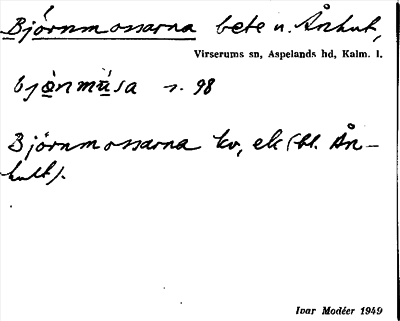 Björnmossarna bete u. Ånhult,
Virserums sn, Aspelands hd, Kalm. l.
bjǿnmùsa s. 98
Björnmossarna kv, ek (bl. Ån-
hult).
Ivar Modéer 1949